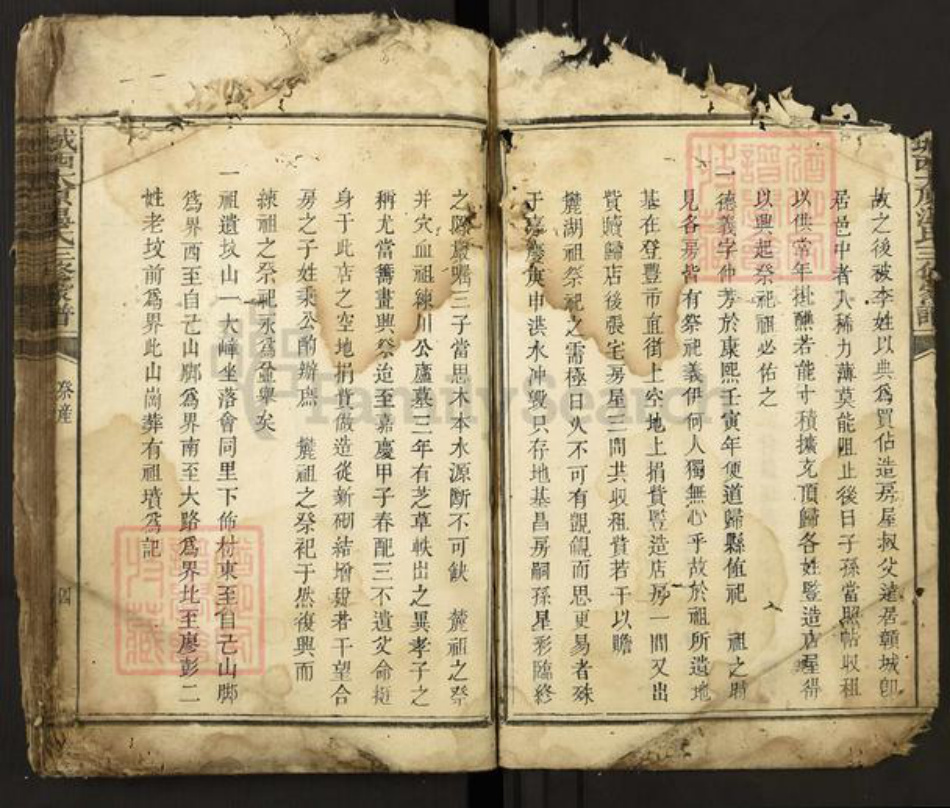 故之後被李姓以典為買佔造房屋叔父遠居贛城卽
居邑中者人稀力薄莫能阻止後日子孫當照帖收租
以供常年掛醮若能寸積擴充頂歸各姓豎造店屋得
以興起祭祀祖必佑之
一德義字仲芳於康熙壬寅年便道歸縣值祀 祖之期
見各房皆有祭祀義伊何人獨無心乎故於祖所遺地
基在登豐市直街上空地上捐貲豎造店房一間又出
貲贖歸店後張宅房屋三間共收租貲若干以贍
麓湖祖祭祀之需極日久不可有覬覦而思更易者殊
于嘉慶庚申洪水冲毀只存地基昌房嗣孫星彩臨終
之際嚴囑三子當思木本水源斷不可缺 麓祖之祭
并穴血祖練川公廬墓三年有芝草軼出之異孝子之
稱尤當籌畫興祭迨至嘉慶甲子春配三不遺父命挺
身于此店之空地捐貲做造從新砌結增租若干望合
房之子姓秉公酌辦焉 麓祖之祭祀于然復興而
練祖之祭祀永為盛舉矣
一祖遺坟山一大嶂坐落會同里下佈村東至自己山脚
為界西至自己山脚為界南至大路為界北至廖彭二
姓老坟前為界此山崗葬有祖墳為記
祭産
四
FamilySearch